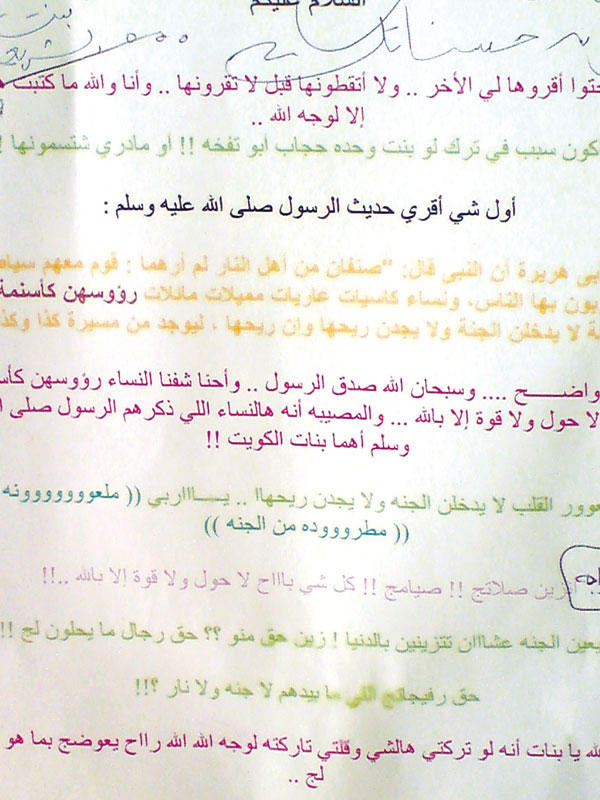 السلام عليكم
حسناتك
بنت
ختوا أقروها لي الأخر .. ولا أتقطونها قبل لا تقرونها .. وأنا والله ما كتبت
إلا لوجه الله ..
كون سبب في ترك لو بنت وحده حجاب ابو تفخه !! أو مادري شتسمونها !
أول شي أقري حديث الرسول صلى الله عليه وسلم :
بي هريرة أن النبي قال: "صنفان من أهل النار لم أرهما : قوم معهم سياط
بون بها الناس، ونساء كاسيات عاريات مميلات مائلات رؤوسهن كأسنمة
ة لا يدخلن الجنة ولا يجدن ريحها وإن ريحها ، ليوجد من مسيرة كذا وكذ
واضـــــح .... وسبحان الله صدق الرسول .. وأحنا شفنا النساء رؤوسهن كأس
لا حول ولا قوة إلا بالله ... والمصيبه أنه هالنساء اللي ذكرهم الرسول صلى ا
وسلم أهما بنات الكويت !!
عوور القلب لا يدخلن الجنه ولا يجدن ريحهاا .. يـــــاربي (( ملعووووووونه
(( مطروووده من الجنه ))
زين صلاتج !! صيامج !! كل شي بااااح لا حول ولا قوة إلا بالله ..!!
يعين الجنه عشااان تتزينين بالدنيا ! زين حق منو ؟؟ حق رجال ما يحلون لج !!
حق رفيجاتج اللي ما بيدهم لا جنه ولا نار ؟!!
لله يا بنات أنه لو تركتي هالشي وقلتي تاركته لوجه الله الله رااح يعوضج بما هو
لج ..